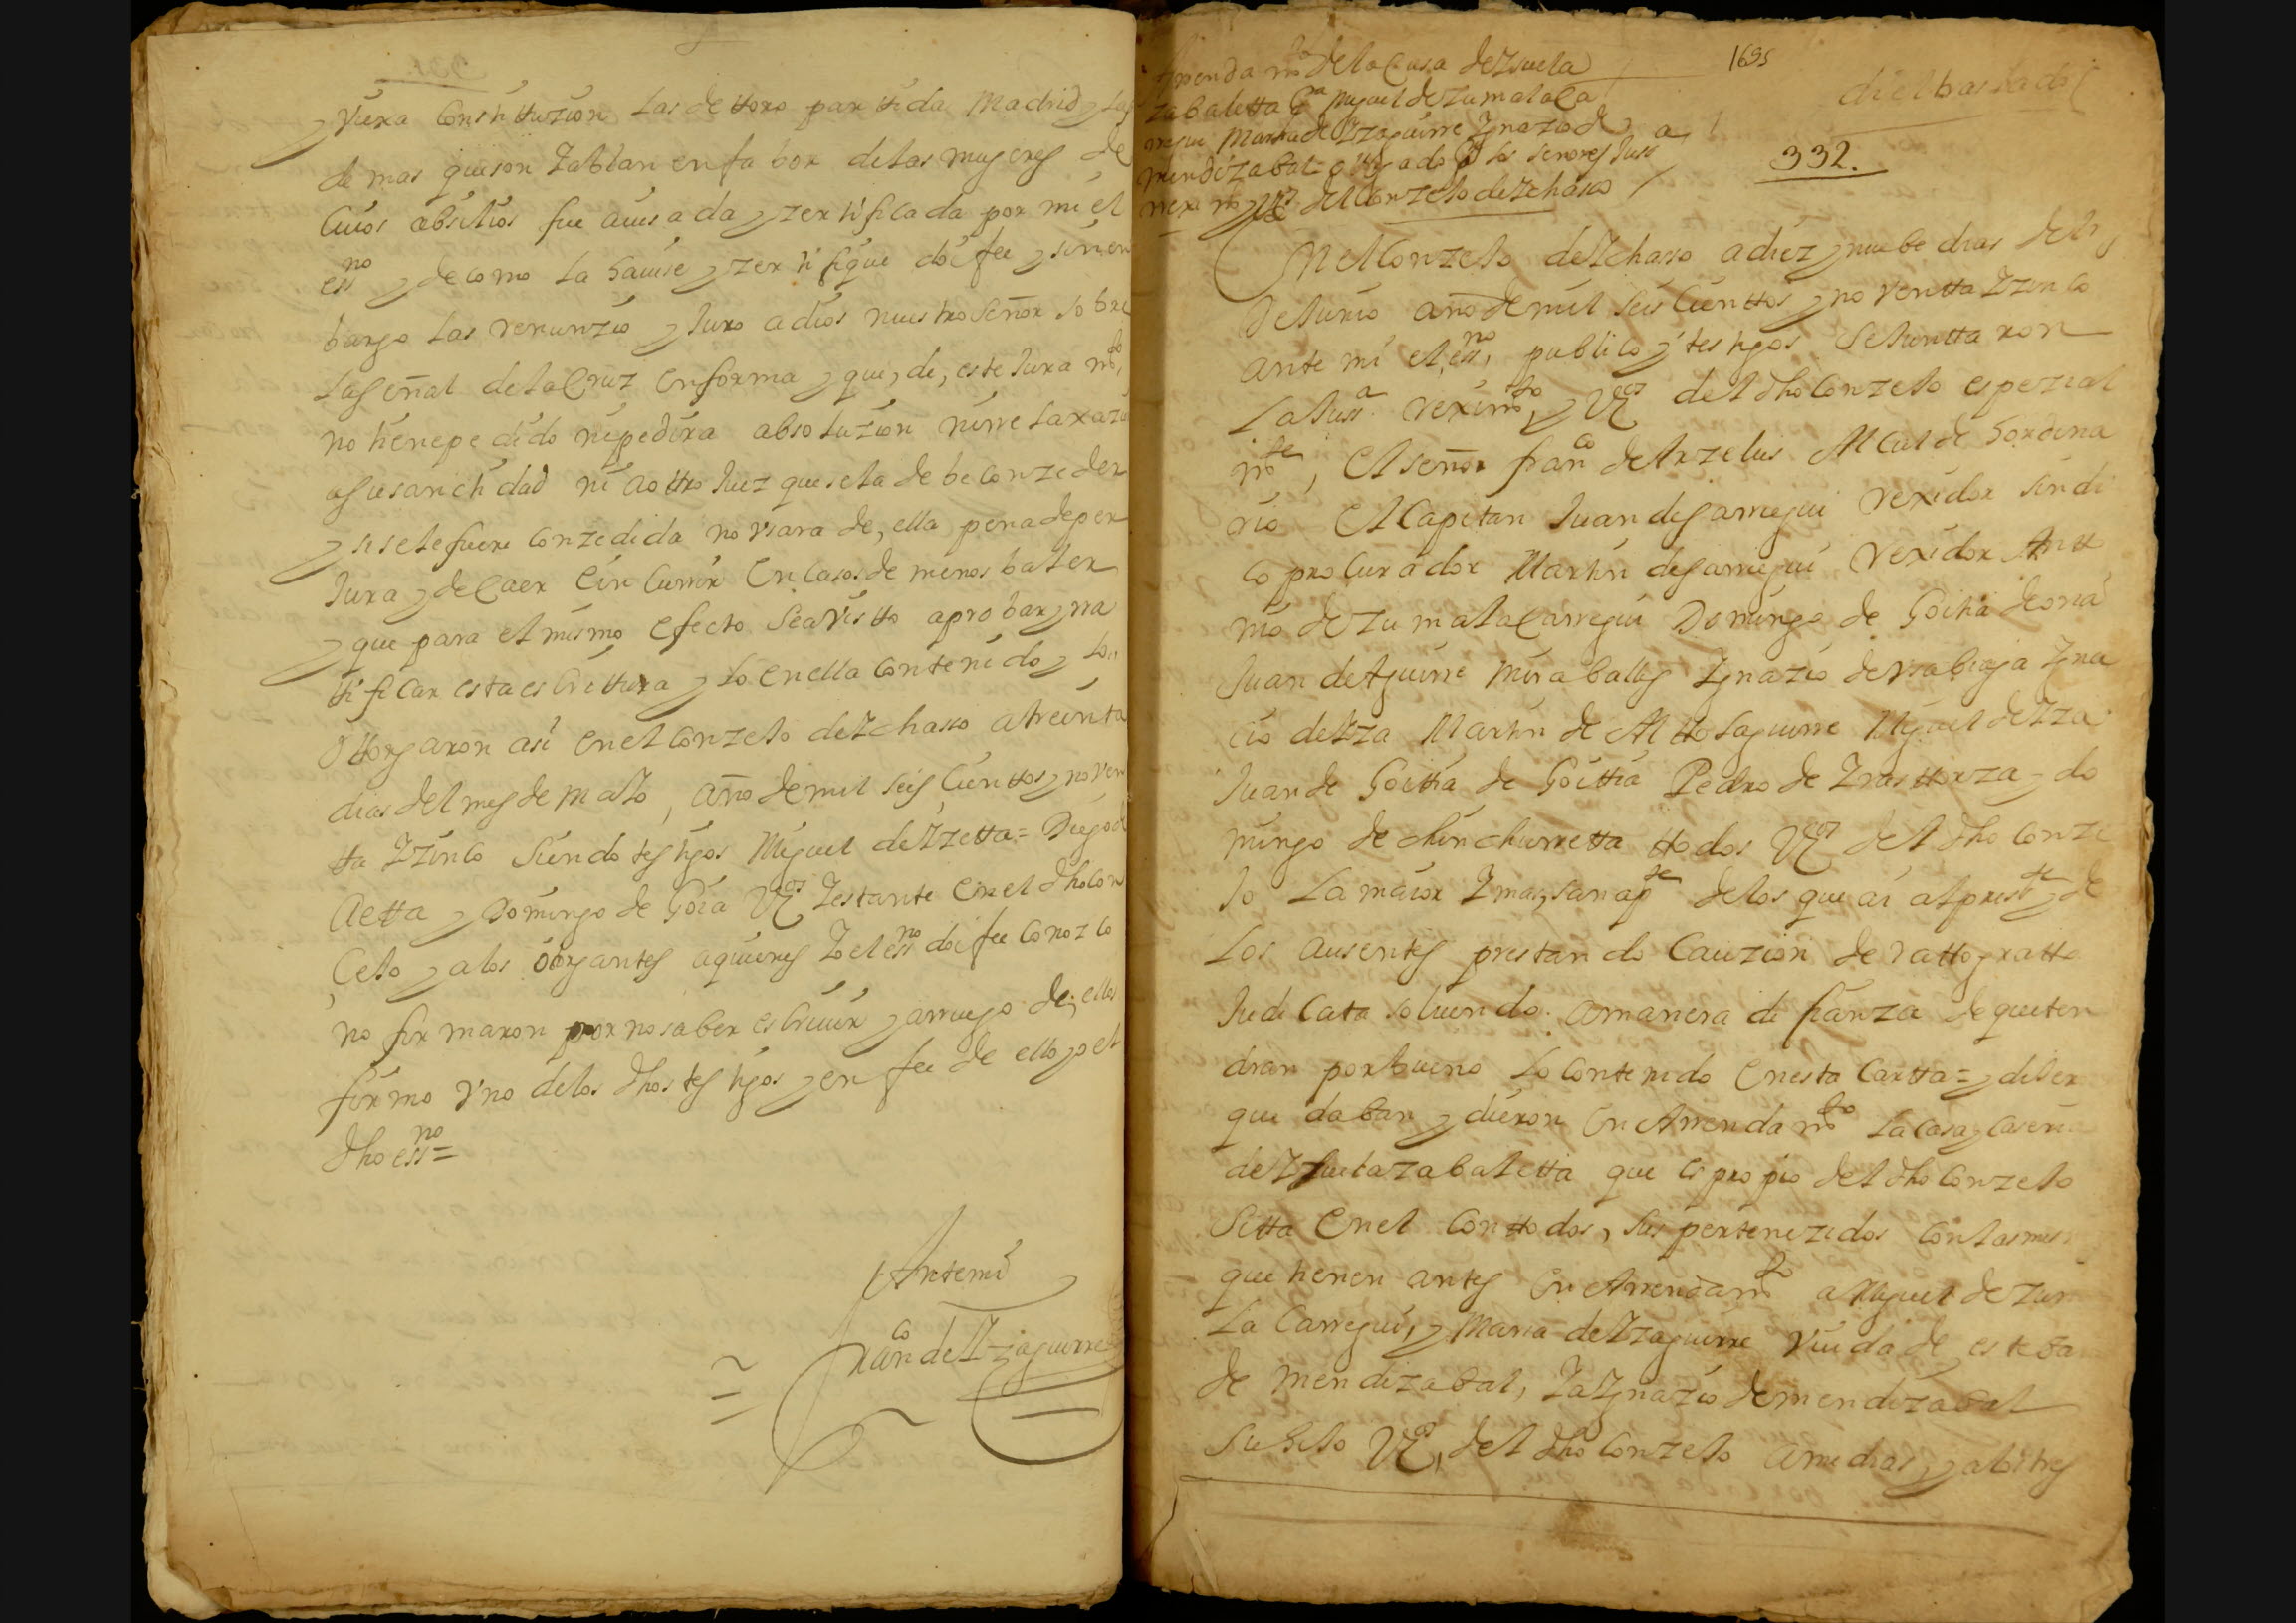 y nueva Constittuzion Las de ttoro parttida Madrid y Las
de mas que son I ablan en fabor de las mugeres de
Cuios absilios fue auisada y zertificada por mi el
essno y de como La hauise y zertifique doi fee y sin en
bargo Las renunzio y Juro a dios nuestro Señor sobre
La señal de la Cruz en forma y que, de, este Juramto
no tiene pedido ni pedira absoluzion ni rrelaxazion
a su santidad ni a ottro Juez que se la debe conzeder
y si se le fuere conzedida no vsara de, ella pena de per
Jura y de Caer E in Currir En Casos de menos baler
y que para el mismo efecto sea visto aprobar y rra
ttificar esta escrittura y Lo en ella contenido y Lo
Ottorgaron asi en el conzeJo de Ichaso a treinta
dias del mes de maIo, año de mil seis Cienttos y noven
tta I zinco Siendo testigos Miguel de Izetta = Diego de
Aetta y Domingo de Goia Vezos I estante en el dho con
CeJo y a los otorgantes a quienes Io el essno doi fee conozco
no firmaron por no saber escriuir y a rruego de, ellos
firmo vno de los dhos testigos y en fee de ello yo el
dho essno =
Antemi
Franco de Izaguirre
1695
dieltraslado
332.
Arrendamto de la Casa de Isueta
zabaletta Pa Miguel de Zumalaca
rregui Maria de Izaguirre Ignazio de
mendizabal ottorgado Por los señores Justa
rreximto y Vezos del ConzeJo de Ichaso
En el ConzeJo de Ichaso a diez y nuebe dias del
de Junio año de mil seis Cienttos y noventta I zinco
ante mi el, essno, publico y testigos se Junttaron
La Justa reximto, y Vezos del dho ConzeJo espezial
mte, El señor franco de Arzelus Alcalde hordina
rio El Capitan Juan de Garregui rexidor sindi
co procurador Martin de Garregui rexidor Antt
nio de Zumalacarregui Domingo de Goitia de oria
Juan de Aguirre miraballes Ignazio de vsabiaga Igna
cio de Iza Martin de Alttolaguirre Miguel de Iza
Juan de Goittia de Goittia Pedro de Irasttorza - do
mingo de chinchurretta ttodos Vezos del dho conze
Jo La maior I mas, sana pte de los que ai al preste y de
Los ausentes prestando Cauzion de ratto gratto
Judicata soluendo. a manera di fianza de que ten
dran por bueno Lo contenido en esta Cartta = y diJer
que daban y dieron en Arrendamto La Casa y Caseria
de Isueta zabaletta que es propio del dho ConzeJo
Sitta en el Con ttodos, sus pertenezidos con las mis
que tienen antes en Arrendamto a Miguel de Zum
La Carregui, y Maria de Izaguirre viuda de esteba
de mendizabal, I a Ignazio de mendizabal
su hiJo Vezos, del dho ConzeJo a medias, y a bitres